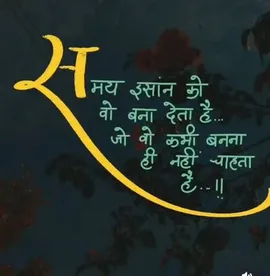 समय इसांन को
वो बना देता है...
जो वो कभी बनना
ही नहीं चाहता
हैं...!!